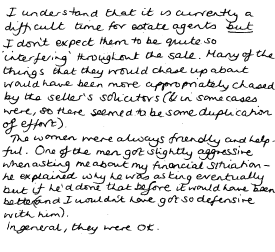 I understand that it is currently a
difficult time for estate agents but
I don't expect them to be quite so
'interfering' throughout the sale. Many of the
things that they would chase up about
would have been more appropriately chased
by the seller's solicitors (& in some cases
were, so there seemed to be some duplication
of effort).
The women were always friendly and help-
ful. One of the men got slightly aggressive
when asking me about my financial situation -
he explained why he was asking eventually
but if he'd done that before it would have been
better (and I wouldn't have got so defensive
with him).
In general, they were OK.